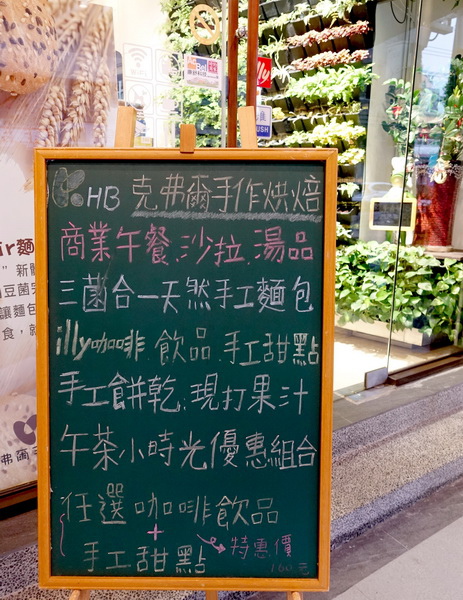 HB 克弗爾手作烘焙
商業午餐.沙拉.湯品
三菌合一天然手工麵包
illy咖啡.飲品.手工甜點
手工餅乾.現打果汁
午茶小時光優惠組合
任選咖啡飲品
+
手工甜點
特惠價
160元